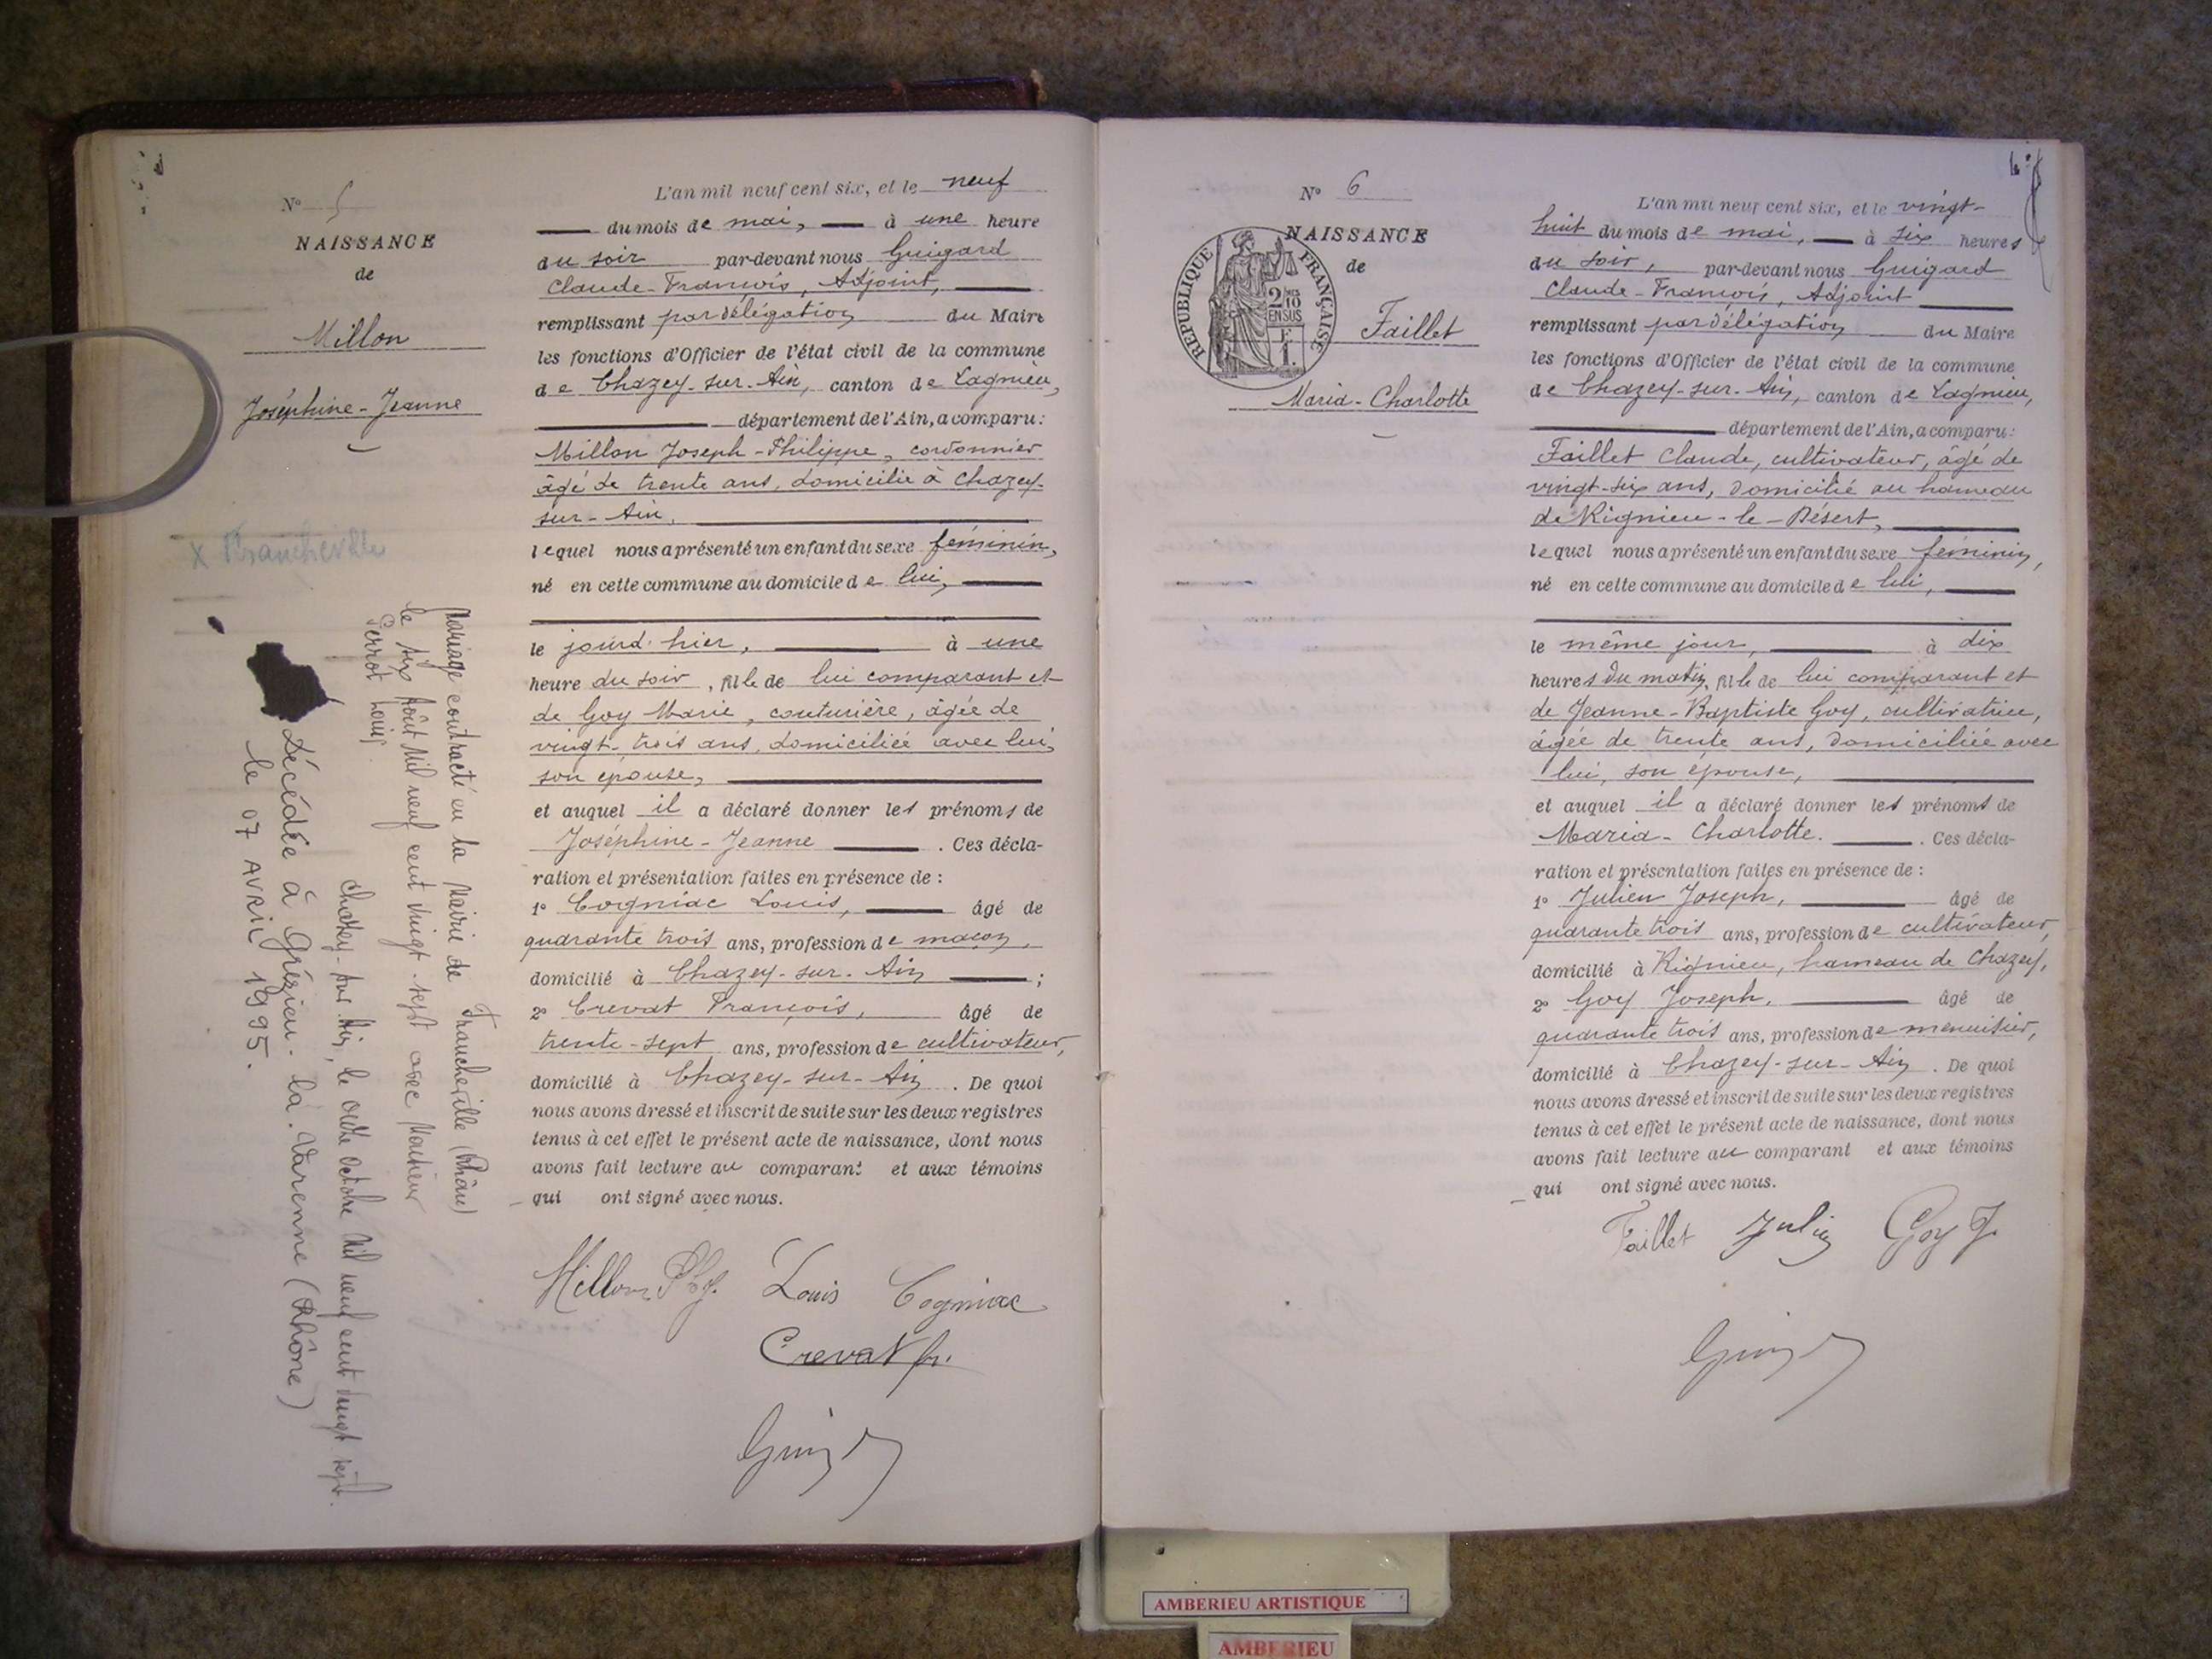 N° 5
NAISSANCE
de
Millon
Joséphine-Jeanne
x Francheville
Mariage contracté en la Mairie de Francheville (Rhône)
le six Août Mil neuf cent vingt-sept avec Monsieur
Perrot Louis
Chazey-sur-Ain, le octobre Mil neuf cent vingt sept.
Décédée à Grézieu-la-Varenne (Rhône)
le 07 AVRIL 1995.
L'an mil neuf cent six, et le neuf
du mois de mai, à une heure
du soir par-devant nous Guigard
Claude-François, Adjoint,
remplissant par délégation du Maire
les fonctions d'Officier de l'état civil de la commune
de Chazey-sur-Ain, canton de Lagnieu,
département de l'Ain, a comparu:
Millon Joseph-Philippe, cordonnier
âgé de trente ans, domicilié à Chazey-
sur-Ain,
lequel nous a présenté un enfant du sexe féminin,
né en cette commune au domicile de lui,
le jourd'hier, à une
heure du soir, fille de lui comparant et
de Goy Marie, couturière, âgée de
vingt-trois ans, domiciliée avec lui,
son épouse,
et auquel il a déclaré donner les prénoms de
Joséphine-Jeanne. Ces décla-
ration et présentation faites en présence de:
1° Cogniac Louis, âgé de
quarante trois ans, profession de maçon,
domicilié à Chazey-sur-Ain;
2° Crevat François, âgé de
trente-sept ans, profession de cultivateur,
domicilié à Chazey-sur-Ain. De quoi
nous avons dressé et inscrit de suite sur les deux registres
tenus à cet effet le présent acte de naissance, dont nous
avons fait lecture au comparant et aux témoins
qui ont signé avec nous.
Millon Louis Cogniac
Crevat fr.
N° 6
NAISSANCE
de
REPUBLIQUE FRANÇAISE
2/10 EN SUS
Faillet
Maria-Charlotte
L'an mil neuf cent six, et le vingt-
huit du mois de mai, à six heures
du soir, par-devant nous Guigard
Claude-François, Adjoint
remplissant par délégation du Maire
les fonctions d'Officier de l'état civil de la commune
de Chazey-sur-Ain, canton de Lagnieu,
département de l'Ain, a comparu:
Faillet Claude, cultivateur, âgé de
vingt-six ans, domicilié au hameau
de Rignieu-le-Désert,
lequel nous a présenté un enfant du sexe féminin,
né en cette commune au domicile de lui,
le même jour, à dix
heures du matin, fille de lui comparant et
de Jeanne-Baptiste Goy, cultivatrice,
âgée de trente ans, domiciliée avec
lui, son épouse,
et auquel il a déclaré donner les prénoms de
Maria-Charlotte. Ces décla-
ration et présentation faites en présence de:
1° Julien Joseph, âgé de
quarante trois ans, profession de cultivateur,
domicilié à Rignieu, hameau de Chazey,
2° Goy Joseph, âgé de
quarante trois ans, profession de menuisier,
domicilié à Chazey-sur-Ain. De quoi
nous avons dressé et inscrit de suite sur les deux registres
tenus à cet effet le présent acte de naissance, dont nous
avons fait lecture au comparant et aux témoins
qui ont signé avec nous.
Faillet Julien Goy J.
AMBERIEU ARTISTIQUE
AMBERIEU